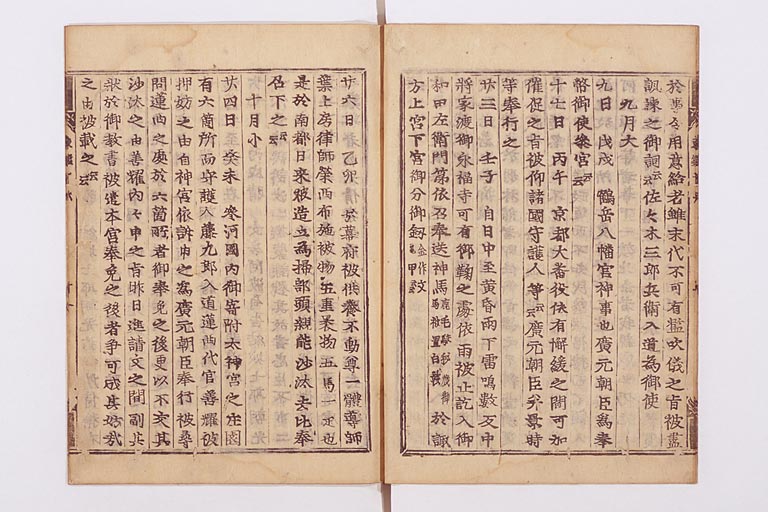 於事令用意給者雖末代不可有濫吹儀之旨被盡
諷諫之御詞云云佐々木三郎兵衛入道為御使
九月大
九日 戊戌 鶴岳八幡宮神事也廣元朝臣為奉
幣御使參宮云云
十七日 丙午 京都大番役依有懈緩之聞可加
催促之旨被仰諸國守護人等云云廣元朝臣 景時
等奉行之
廿三日 壬子 自日中至黄昏雨下雷鳴數反申
將家渡御永福寺可有御鞠之處依雨被止訖入御
和田左衛門尉依召奉送神馬 於諏
方上宮下宮御分御劔
廿六日 乙卯 於幕府被供養不動尊一體導師
葉上房律師榮西布施被物五重裹物五馬一疋也
是於南都日來被造立為掃部頭親能沙汰去比奉
召下之云云
十月小
廿四日 癸未 參河國内御寄附太神宮之庄園
有六箇所而守護人藤九郎入道蓮西代官善耀被
押妨之由自神宮依訴申之為廣元朝臣奉行被尋
問蓮西之處於六箇所者御奉免之後更以不交其
沙汰之由善耀内々申之旨昨日進請文之間副其
狀於御教書被遣本宮奉免之後者爭可成其妨哉
之由被載之云云